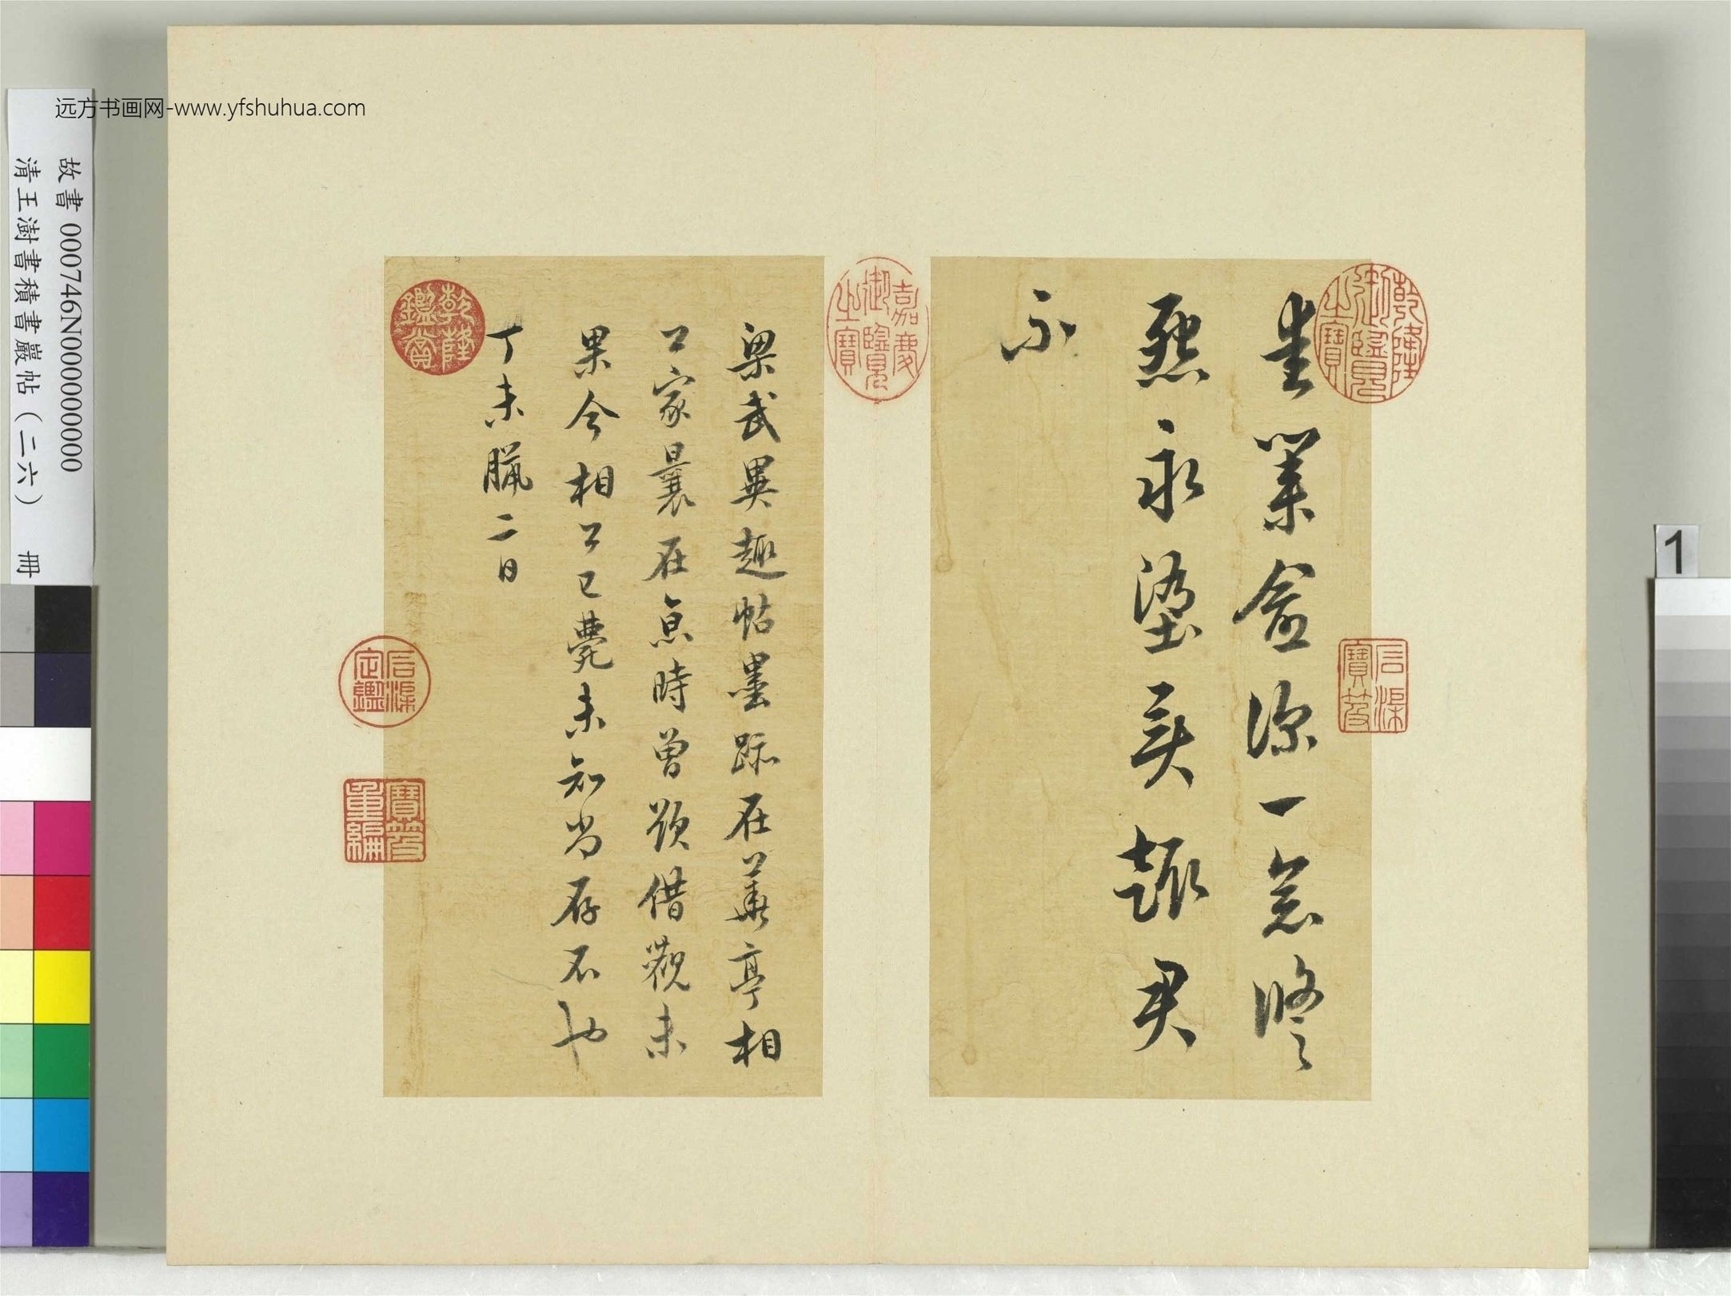 远方书画网-www.yfshuhua.com
故書 000746N000000000
清王澍書積書巖帖（二六） 冊
1
乾隆御覽之寶
石渠寶笈
業愈深一念修
怨永墮異趣君
不
嘉慶御覽之寶
梁武異趣帖墨跡在華亭相
公家曩在京時曾欲借觀未
果今相公已薨未知尚存不也
丁未臘二日
乾隆鑑賞
石渠定鑑
寶笈重編